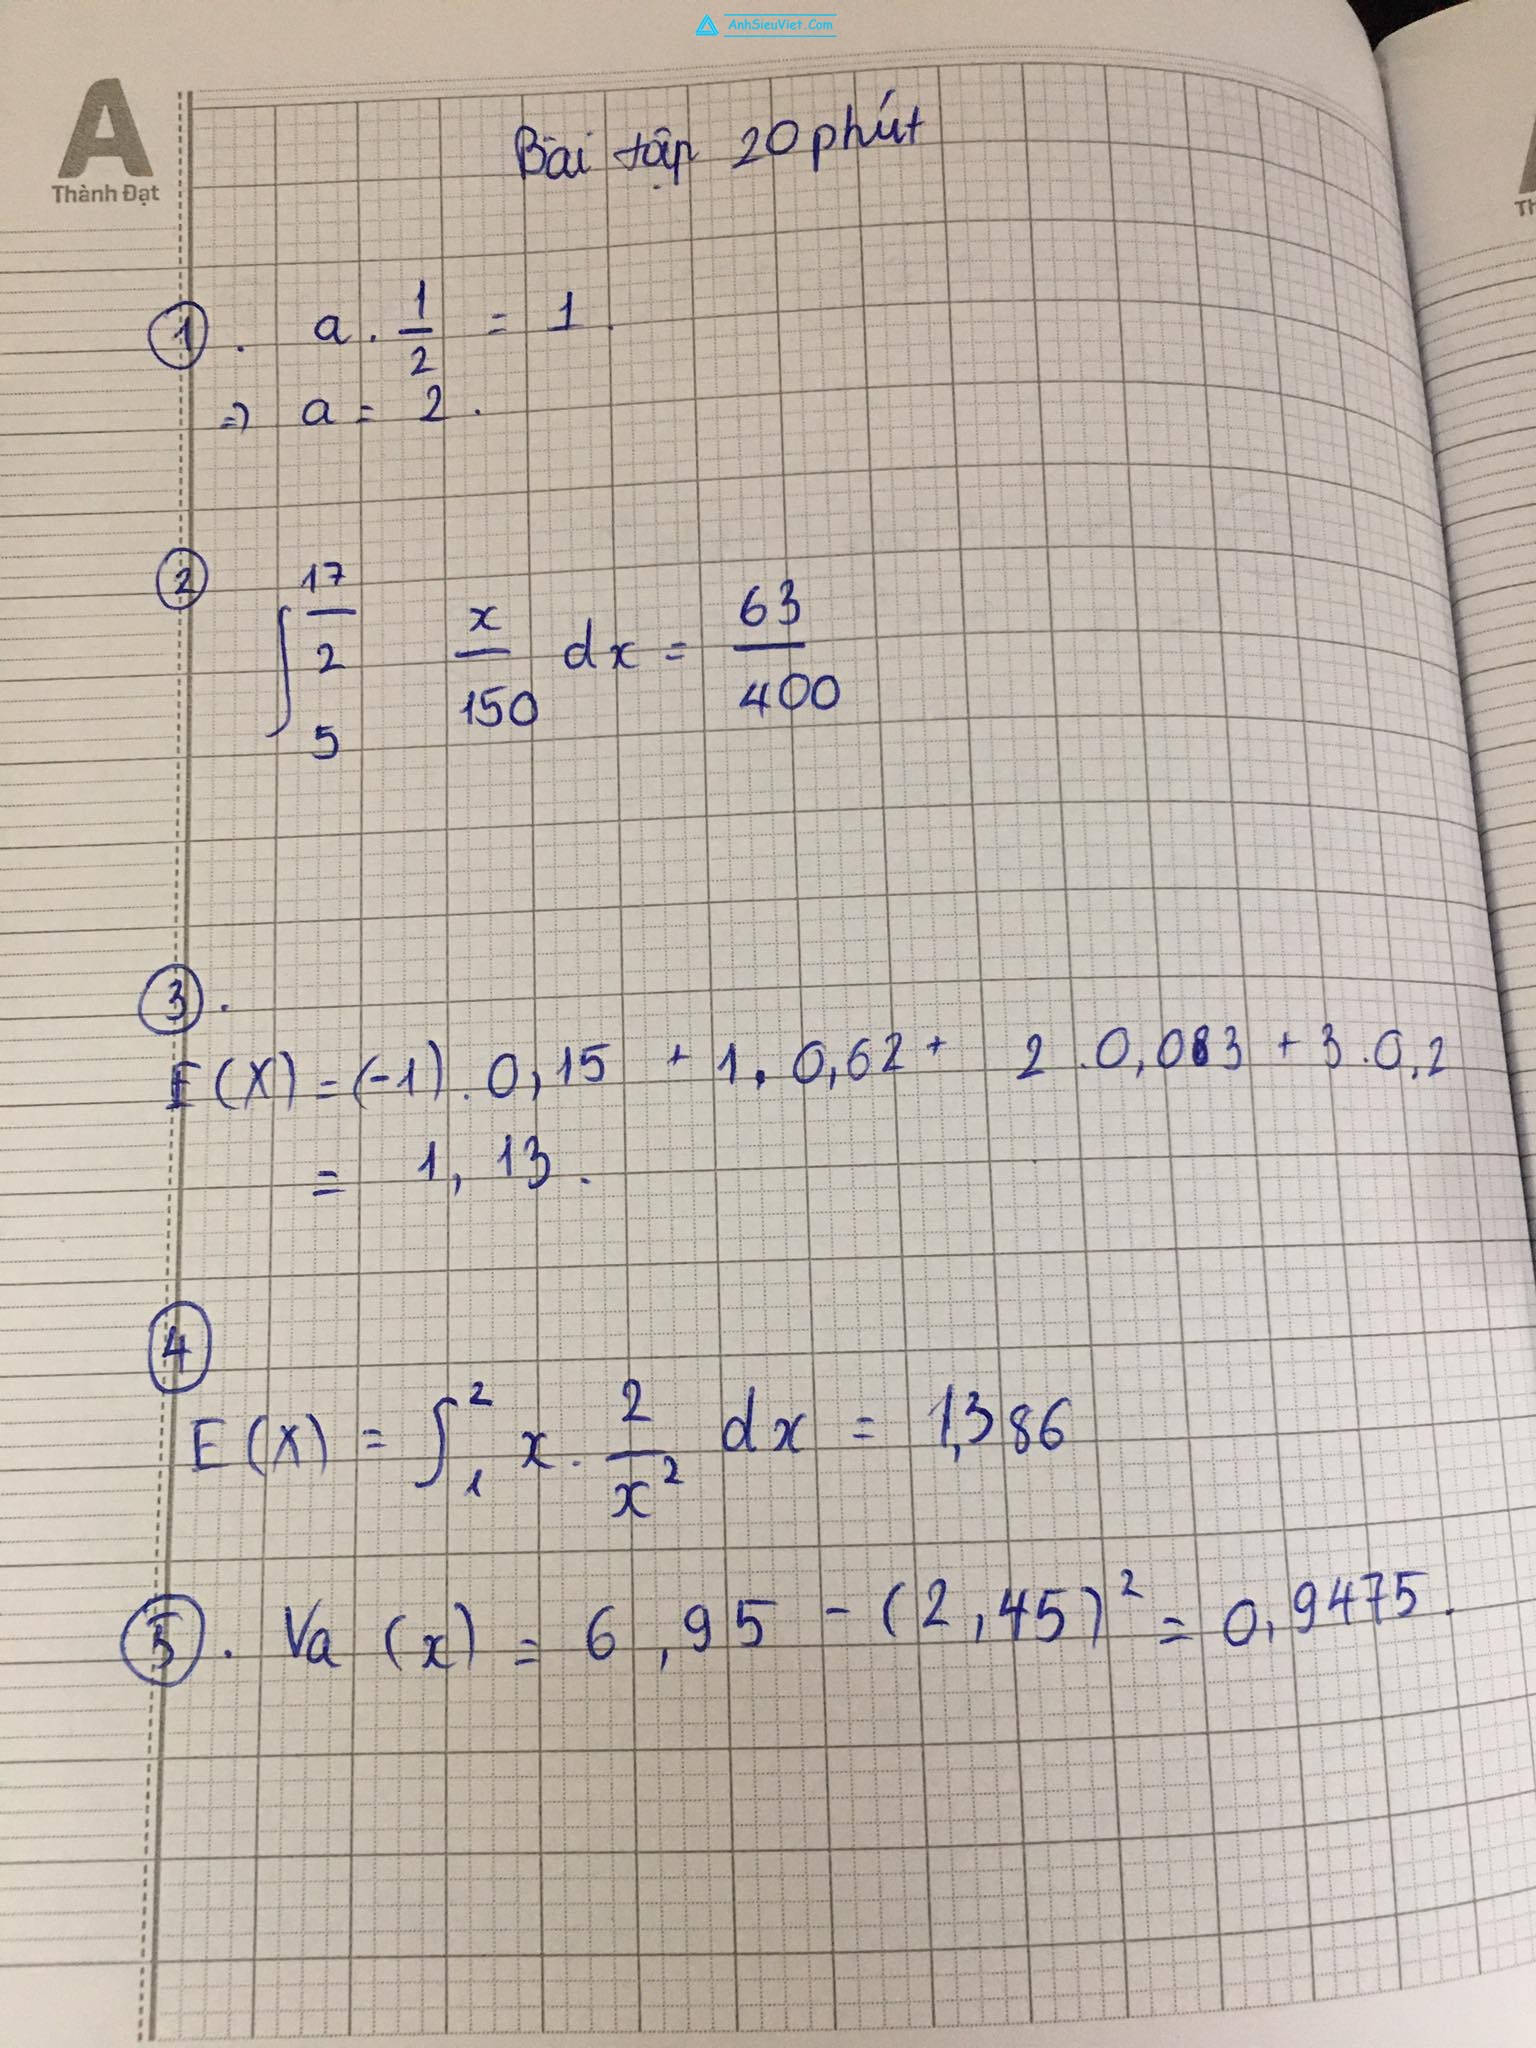 AnhSieuViet.Com
A
Thành Đạt
Bài tập 20 phút
① . a . 1/2 = 1 .
⇒ a = 2 .
② ∫₅^(17/2) x/150 dx = 63/400
③ .
E(X) = (-1) . 0,15 + 1 . 0,62 + 2 . 0,083 + 3 . 0,2
= 1,13 .
④
E(X) = ∫₁² x . 2/x² dx = 1,386
⑤ . Va (x) = 6,95 - (2,45)² = 0,9475 .